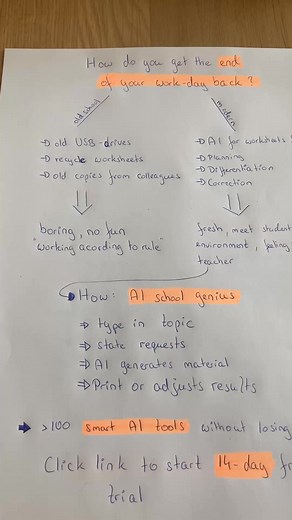 How do you get the end
of your work-day back?
old school
modern
→ old USB-drives
→ recycle worksheets
→ old copies from colleagues
→ AI for worksheets
→ Planning
→ Differentiation
→ Correction
boring, no fun
"working acording to rule"
fresh, meet student
environment, feeling
teacher
How: AI school genius
⇒ type in topic
⇒ state requests
⇒ AI generates material
⇒ Print or adjusts results
→ >100 smart AI tools without losing
Click link to start 14-day
trial